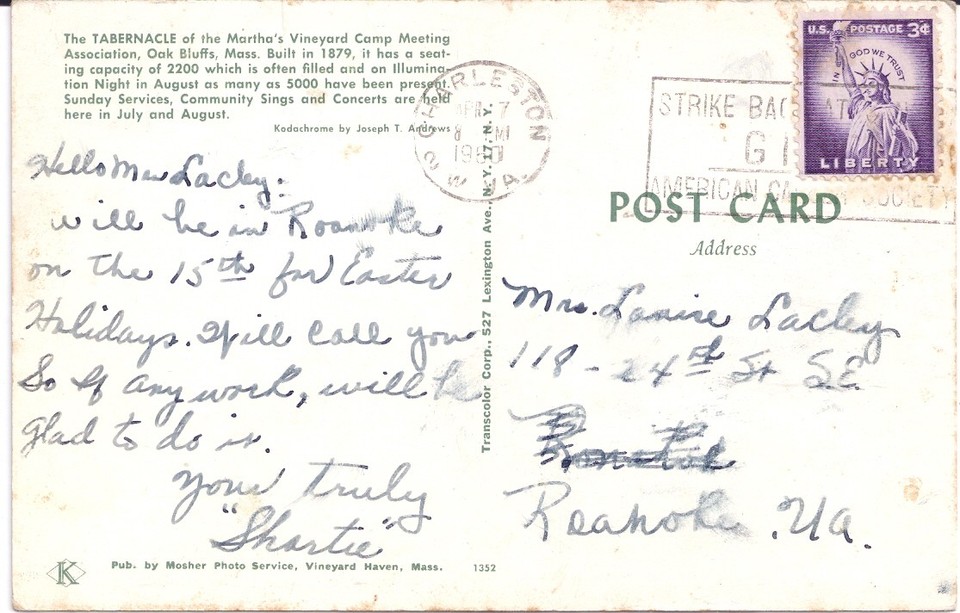 The TABERNACLE of the Martha's Vineyard Camp Meeting
Association, Oak Bluffs, Mass. Built in 1879, it has a seat-
ing capacity of 2200 which is often filled and on Illumina-
tion Night in August as many as 5000 have been present.
Sunday Services, Community Sings and Concerts are held
here in July and August.
Kodachrome by Joseph T. Andrews
Hello Mrs Lacley:
will be in Roanoke
on the 15th for Easter
Holidays. Will call you
So if any work, will be
glad to do it.
Your truly
"Shortie"
Pub. by Mosher Photo Service, Vineyard Haven, Mass.
1352
K
Transcolor Corp., 527 Lexington Ave., N. Y. 17, N. Y.
CHARLESTON
APR 7
8 M
1960
2 W VA.
STRIKE BAC AT
G
AMERICAN CA SOCIETY
U.S. POSTAGE 3¢
IN GOD WE TRUST
LIBERTY
POST CARD
Address
Mrs. Louise Lacley
118 - 24th St SE
Roanoke, Va.